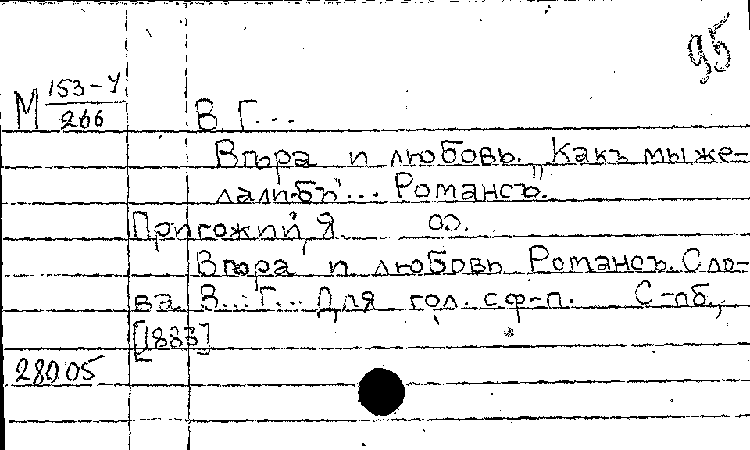 95
М 153-У
266
В Г...
Вѣра и любовь. "Какъ мы же-
лали бъ"... Романсъ.
Пригожий, Я. см.
Вѣра и любовь Романсъ. Сло-
ва В... Г... Для гол. с ф-п. С-пб.,
[1883]
28005